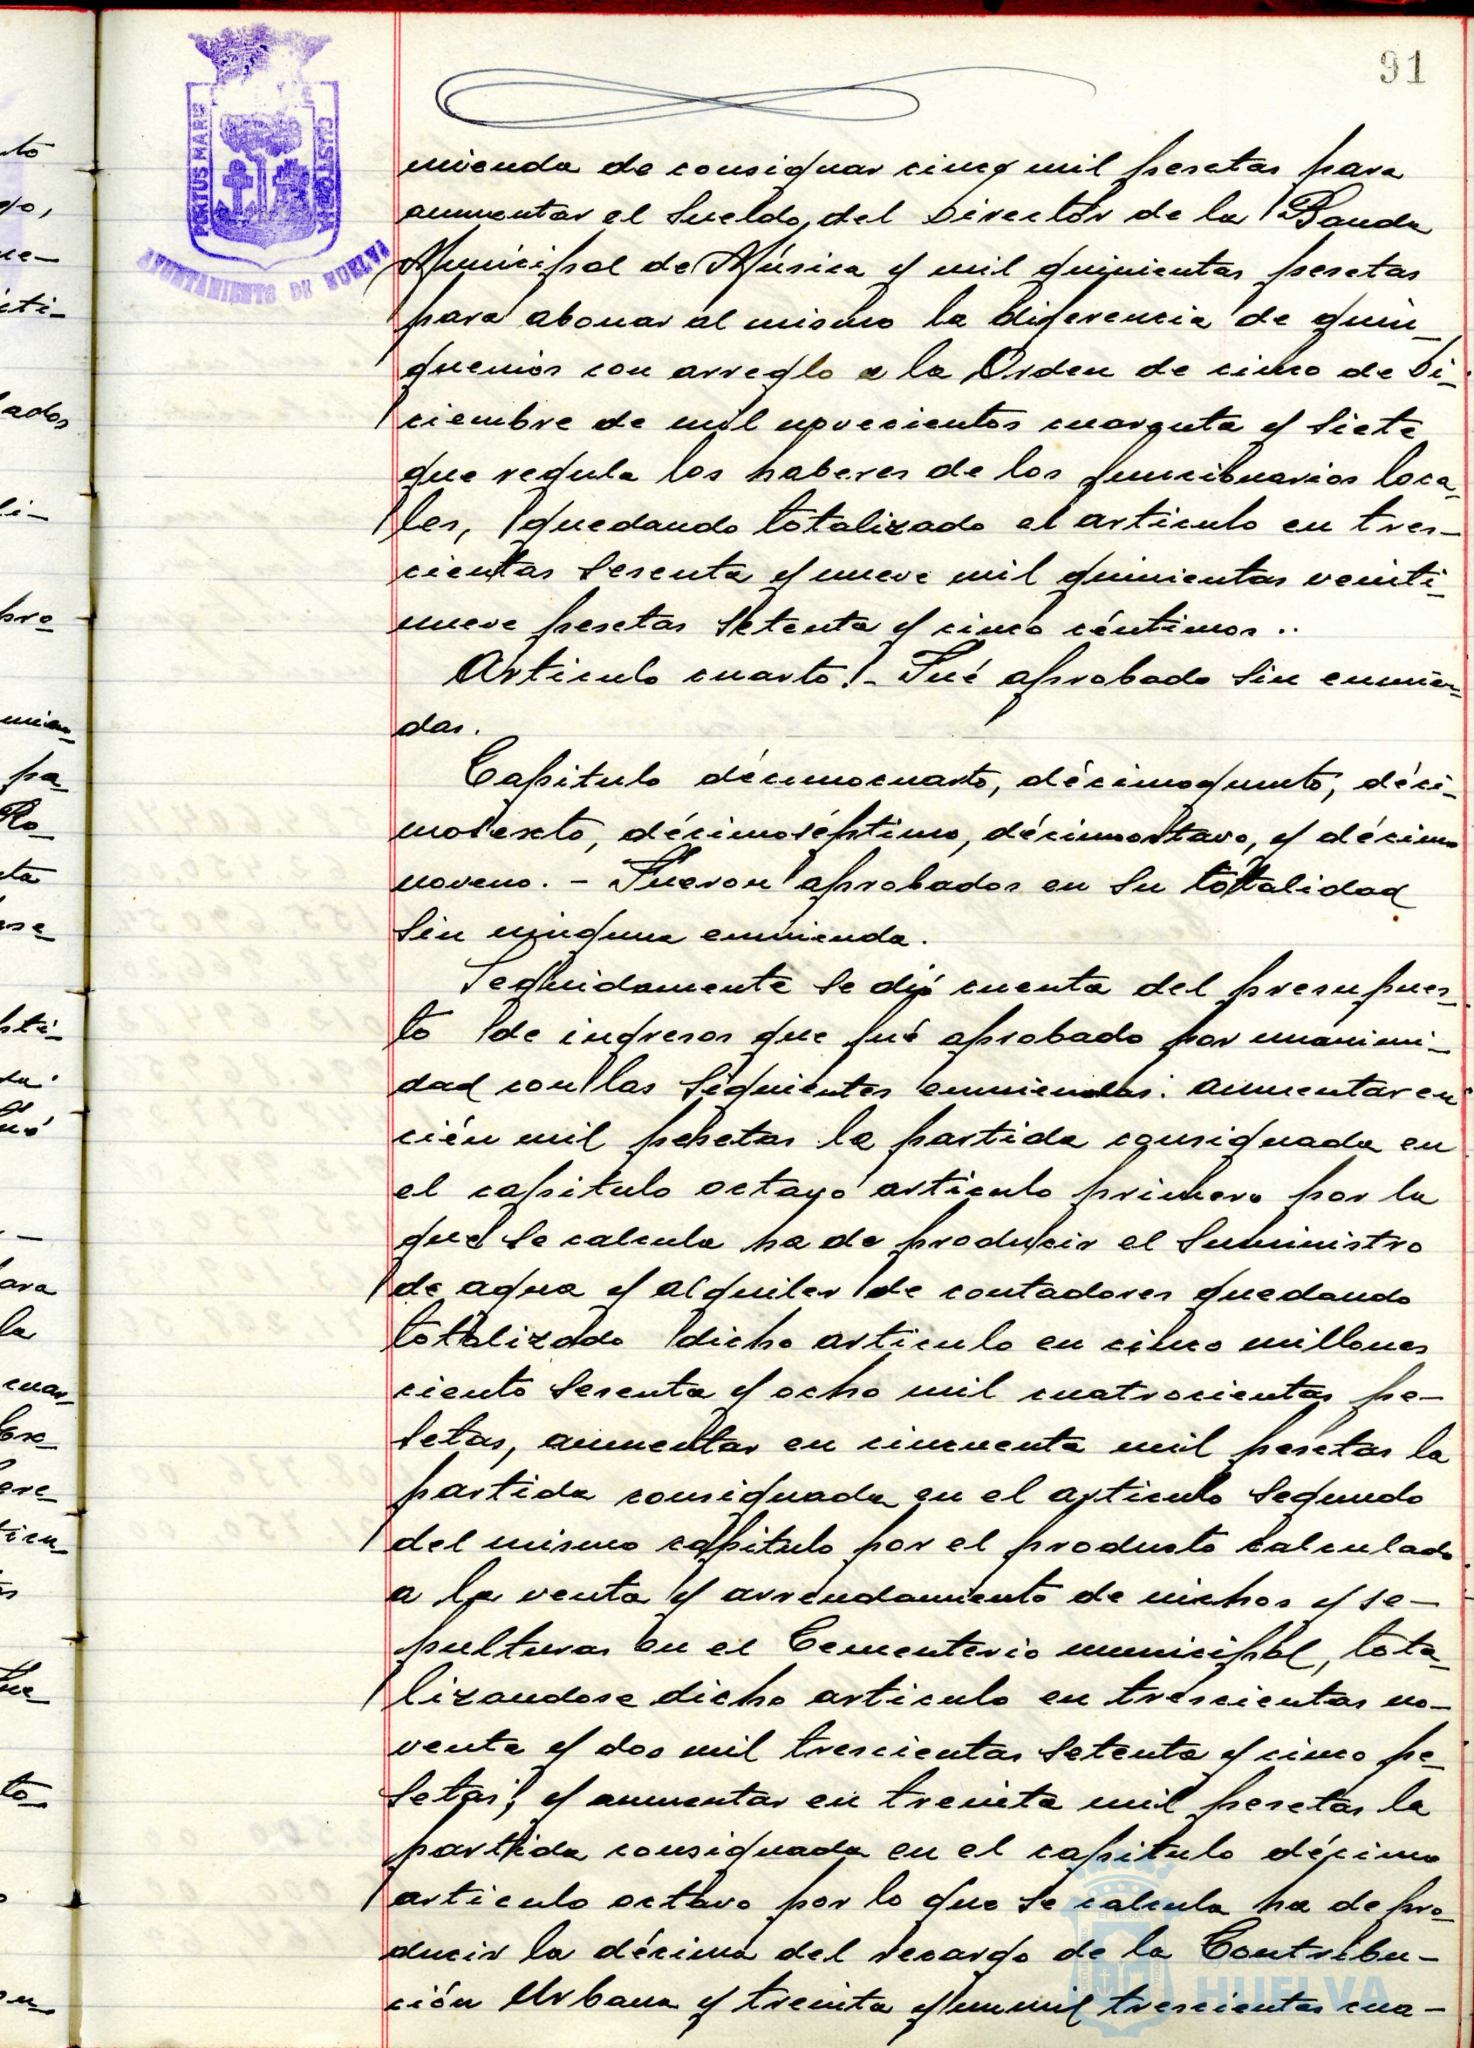 91
PORTUS MARIS
CUSTODIA
AYUNTAMIENTO DE HUELVA
mienda de consignar cinco mil pesetas para
aumentar el sueldo del Director de la Banda
Municipal de Música y mil quinientas pesetas
para abonar al mismo la diferencia de quin-
quenios con arreglo a la Orden de cinco de Di-
ciembre de mil novecientos cuarenta y siete
que regula los haberes de los funcionarios loca-
les, quedando totalizado el articulo en tres-
cientas sesenta y nueve mil quinientas veinti-
nueve pesetas setenta y cinco céntimos..
Articulo cuarto.- Fué aprobado sin enmien-
das.
Capitulo décimocuarto, décimoquinto, déci-
mosexto, décimoséptimo, décimooctavo, y décimo
noveno. - Fueron aprobados en su totalidad
sin ninguna enmienda.
Seguidamente se dió cuenta del presupues-
to de ingresos que fué aprobado por unanimi-
dad con las siguientes enmiendas: aumentar en
cién mil pesetas la partida consignada en
el capitulo octavo articulo primero por la
que se calcula ha de producir el suministro
de agua y alquiler de contadores quedando
totalizado dicho articulo en cinco millones
ciento sesenta y ocho mil cuatrocientas pe-
setas, aumentar en cincuenta mil pesetas la
partida consignada en el articulo segundo
del mismo capitulo por el producto calculado
a la venta y arrendamiento de nichos y se-
pulturas en el Cementerio municipal, tota-
lizandose dicho articulo en trescientas no-
venta y dos mil trescientas setenta y cinco pe-
setas; y aumentar en treinta mil pesetas la
partida consignada en el capitulo décimo
articulo octavo por lo que se calcula ha de pro-
ducir la décima del recargo de la Contribu-
ción Urbana y treinta y un mil trescientas cua-
HUELVA